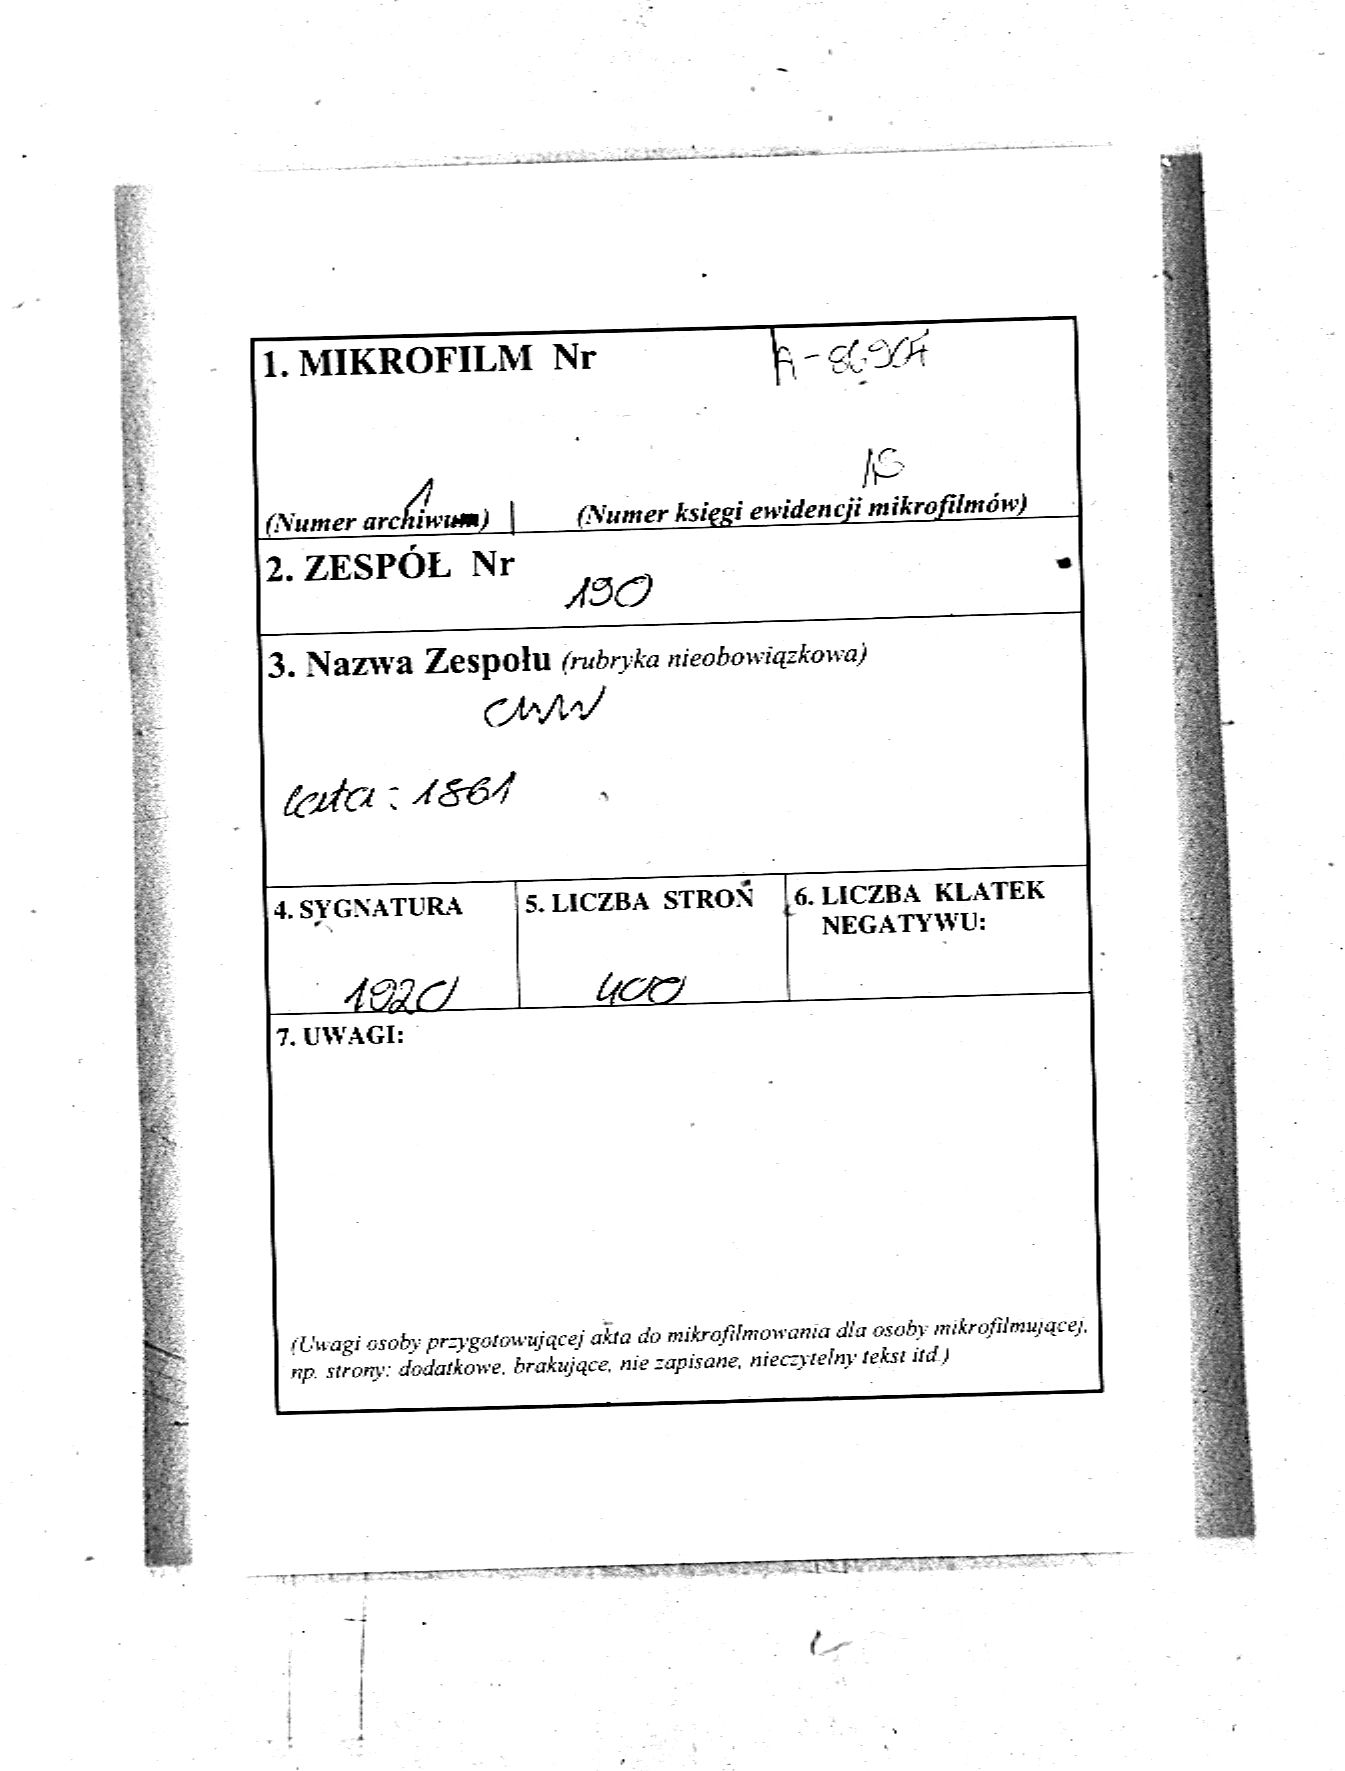 1. MIKROFILM Nr
1
15
(Numer archiwum) | (Numer księgi ewidencji mikrofilmów)
2. ZESPÓŁ Nr
190
3. Nazwa Zespołu (rubryka nieobowiązkowa)
CWW
lata: 1861
4. SYGNATURA 5. LICZBA STRON 6. LICZBA KLATEK
NEGATYWU:
1920 400
7. UWAGI:
(Uwagi osoby przygotowującej akta do mikrofilmowania dla osoby mikrofilmującej,
np. strony: dodatkowe, brakujące, nie zapisane, nieczytelny tekst itd.)